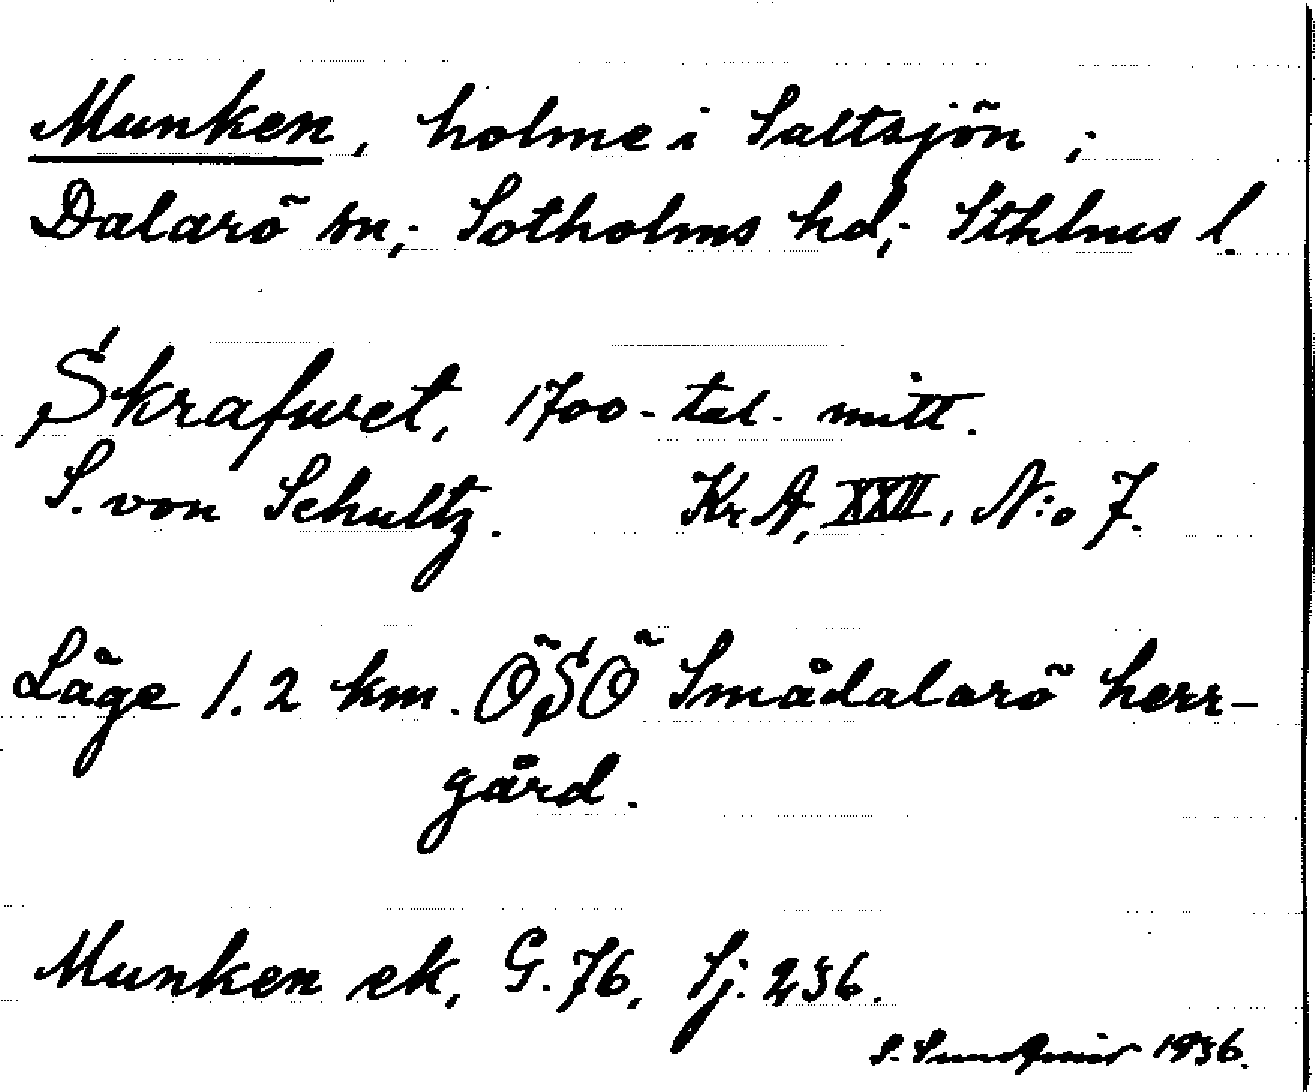 Munken, holme i Saltsjön;
Dalarö sn; Sotholms hd; Sthlms l.
Skrafwet, 1700-tal- mitt.
S. von Schultz. Kr A, XXII, N:o 7.
Läge 1.2 km. ÖSÖ Smådalarö herr-
gård.
Munken ek, G. 76, Sj. 236.
1936.